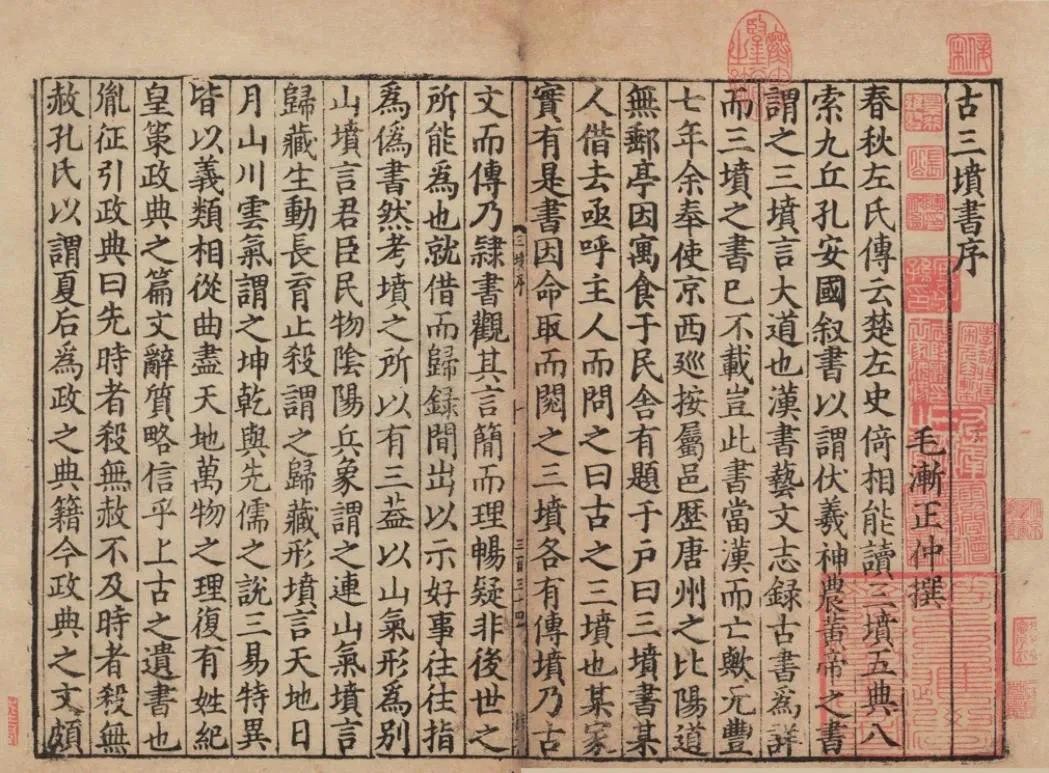 古三墳書序
毛漸正仲撰
春秋左氏傳云楚左史倚相能讀三墳五典八
索九丘孔安國叙書以謂伏羲神農黃帝之書
謂之三墳言大道也漢書藝文志録古書爲詳
而三墳之書已不載豈此書當漢而亡歟元豐
七年余奉使京西廵按屬邑歷唐州之比陽道
無郵亭因寓食于民舍有題于户曰三墳書某
人借去亟呼主人而問之曰古之三墳也某家
實有是書因命取而閱之三墳各有傳墳乃古
三墳序
一
三百三十四
文而傳乃隸書觀其言簡而理暢疑非後世之
所能爲也就借而歸録間出以示好事往往指
爲僞書然考墳之所以有三葢以山氣形爲别
山墳言君臣民物陰陽兵象謂之連山氣墳言
歸藏生動長育止殺謂之歸藏形墳言天地日
月山川雲氣謂之坤乾與先儒之說三易特異
皆以義類相從曲盡天地萬物之理復有姓紀
皇策政典之篇文辭質略信乎上古之遺書也
胤征引政典曰先時者殺無赦不及時者殺無
赦孔氏以謂夏后爲政之典籍今政典之文頗